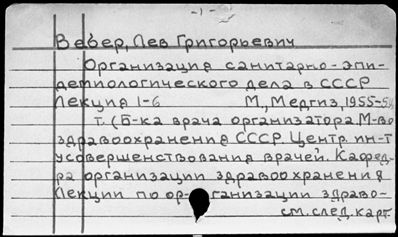 -1-
Вебер, Лев Григорьевич
Организация санитарно-эпи-
демиологического дела в СССР
Лекция 1-6 М., Медгиз, 1955-56
т. (Б-ка врача организатора. М-во
здравоохранения СССР. Центр. ин-т
усовершенствования врачей. Кафед-
ра организации здравоохранения
Лекции по ор-ганизации здраво-
см. след. карт.